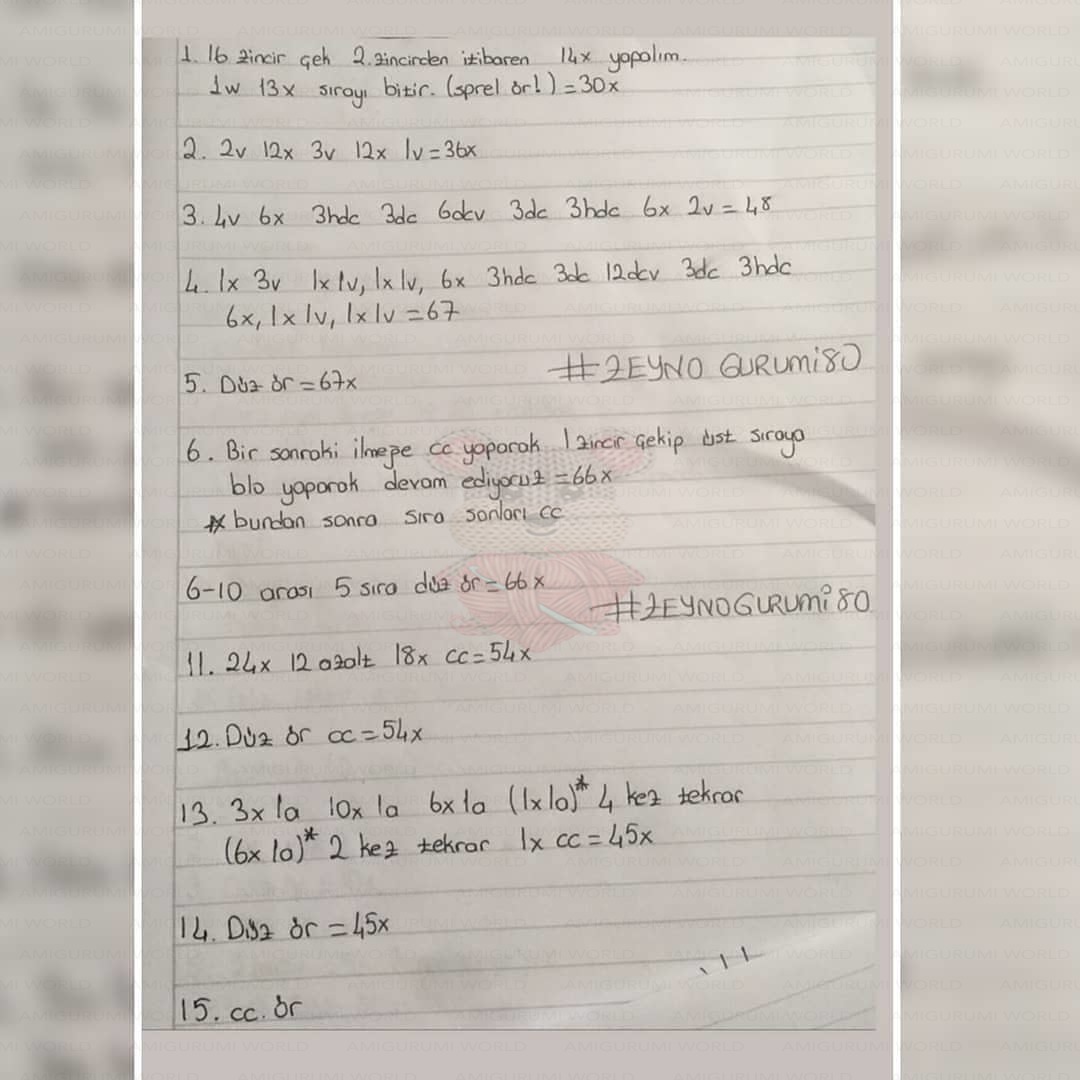 1. 16 zincir çek 2. zincirden itibaren 14x yapalım.
1w 13x sırayı bitir. (sprel ör!) = 30x
2. 2v 12x 3v 12x 1v = 36x
3. 4v 6x 3hdc 3dc 6dcv 3dc 3hdc 6x 2v = 48
4. 1x 3v 1x 1v, 1x 1v, 6x 3hdc 3dc 12dcv 3dc 3hdc
6x, 1x 1v, 1x 1v = 67
5. Düz ör = 67x
#ZEYNO GURUMi80
6. Bir sonraki ilmeğe cc yaparak 1 zincir çekip üst sıraya
blo yaparak devam ediyoruz = 66x
* bundan sonra sıra sonları cc
6-10 arası 5 sıra düz ör = 66x
#ZEYNOGURUMi80
11. 24x 12 azalt 18x cc = 54x
12. Düz ör cc = 54x
13. 3x 1a 10x 1a 6x 1a (1x 1a)* 4 kez tekrar
(6x 1a)* 2 kez tekrar 1x cc = 45x
14. Düz ör = 45x
15. cc. ör
AMIGURUMI WORLD